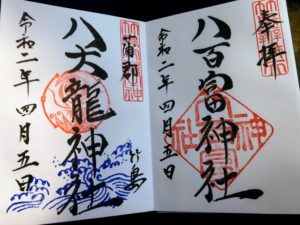 奉拝
八百富神社
令和二年四月五日
蒲郡
八大龍神社
竹島
令和二年四月五日